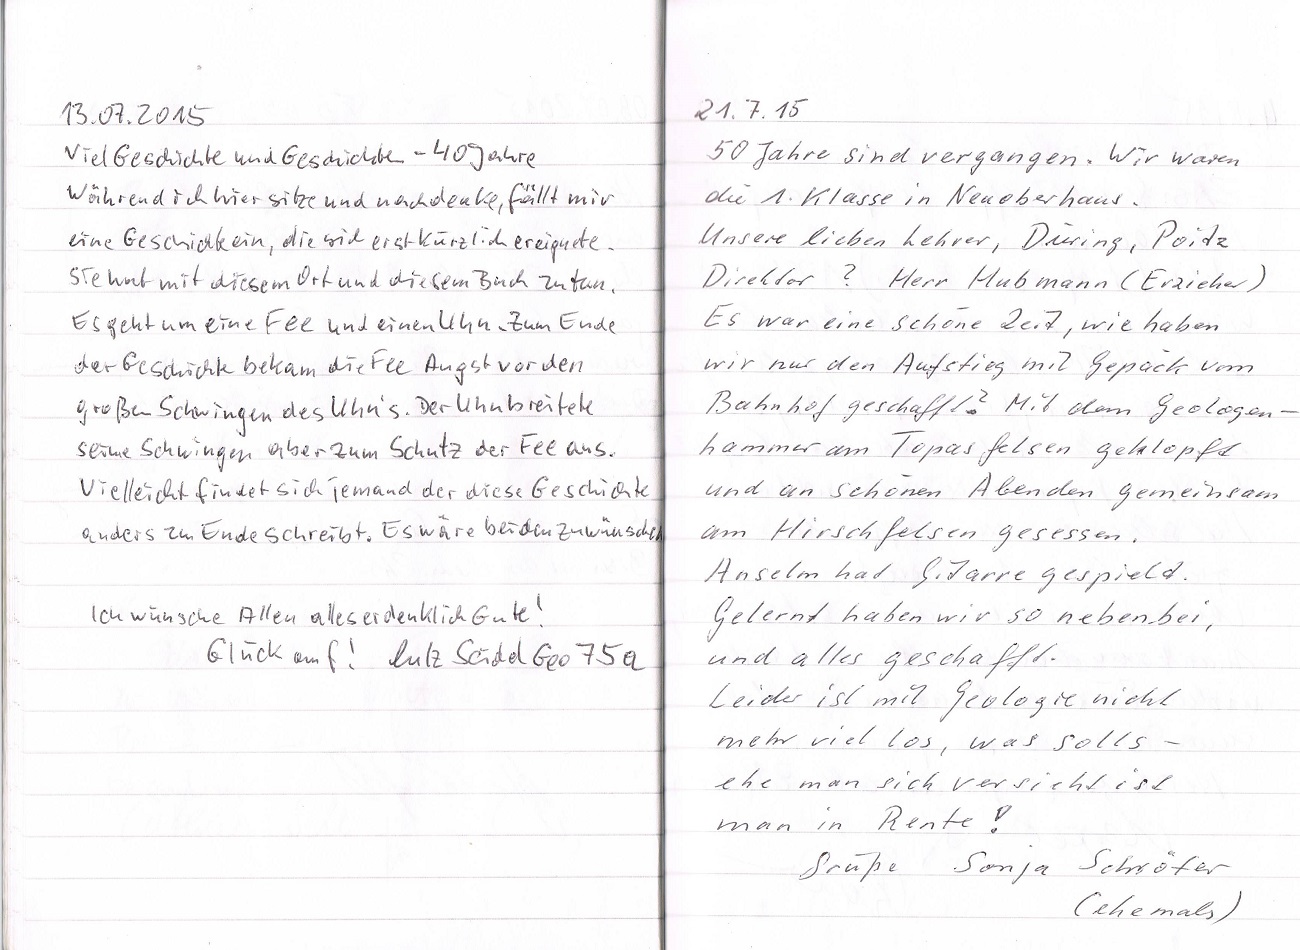 13.07.2015
Viel Geschichte und Geschichten - 40 Jahre
Während ich hier sitze und nachdenke, fällt mir
eine Geschichte ein, die sich erst kürzlich ereignete.
Sie hat mit diesem Ort und diesem Buch zu tun.
Es geht um eine Fee und einen Uhu. Zum Ende
der Geschichte bekam die Fee Angst vor den
großen Schwingen des Uhu's. Der Uhu breitete
seine Schwingen aber zum Schutz der Fee aus.
Vielleicht findet sich jemand der diese Geschichte
anders zu Ende schreibt. Es wäre beiden zu wünschen
Ich wünsche Allen alles erdenklich Gute!
Glück auf! Lutz Geo 75a
21.7.15
50 Jahre sind vergangen. Wir waren
die 1. Klasse in Neuoberhaus.
Unsere lieben Lehrer, Düring, Poitz
Direktor ? Herr Hubmann (Erzieher)
Es war eine schöne Zeit, wie haben
wir nur den Aufstieg mit Gepäck vom
Bahnhof geschafft? Mit dem Geologen-
hammer am Topasfelsen geklopft
und an schönen Abenden gemeinsam
am Hirschfelsen gesessen.
Anselm hat Gitarre gespielt.
Gelernt haben wir so nebenbei,
und alles geschafft.
Leider ist mit Geologie nicht
mehr viel los, was solls -
ehe man sich versieht ist
man in Rente!
Grüße Sonja Schröter
(ehemals)